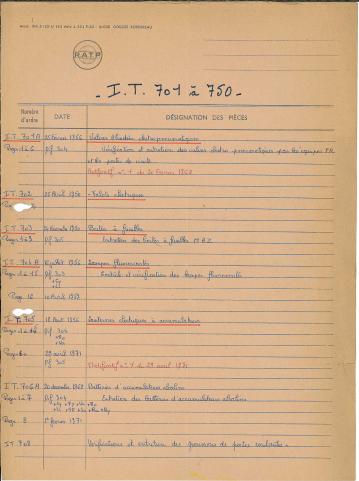 RATP
- I.T. 701 à 750 -
Numéro d'ordre DATE DÉSIGNATION DES PIÈCES
I.T. 701A 25 Février 1956 Valves électropneumatiques
Page 1 à 6 Réf 304 Vérification et entretien des valves électro pneumatiques par les équipes
et les postes de visite
Rectificatif n° 1 du 20 Février 1968
I.T. 702 25 Avril 1950 - Relais électriques
Page
I.T. 703 1950 Boîtes à fusibles
Page 1 à 3 Réf 305 Entretien des boîtes à fusibles M.A.Z.
I.T. 704A juillet 1956 Lampes fluorescentes
Page 1 à 15 Réf 303 Contrôle et vérification des lampes fluorescentes
Page 16 Août 1959
I.T. 705 18 Août 1956 Lanternes électriques à accumulateurs
Page 1 à Réf 304
Page 29 avril 1971
Réf 305 Rectificatif n° 1 du 29 avril 1971
I.T. 706A 20 décembre 1968 Batteries d'accumulateurs alcalins
Page 1 à 7 Réf 304 Entretien des batteries d'accumulateurs alcalins
Page 8 1er février 1971
I.T. 708 Vérifications et entretien des portes coulissantes -